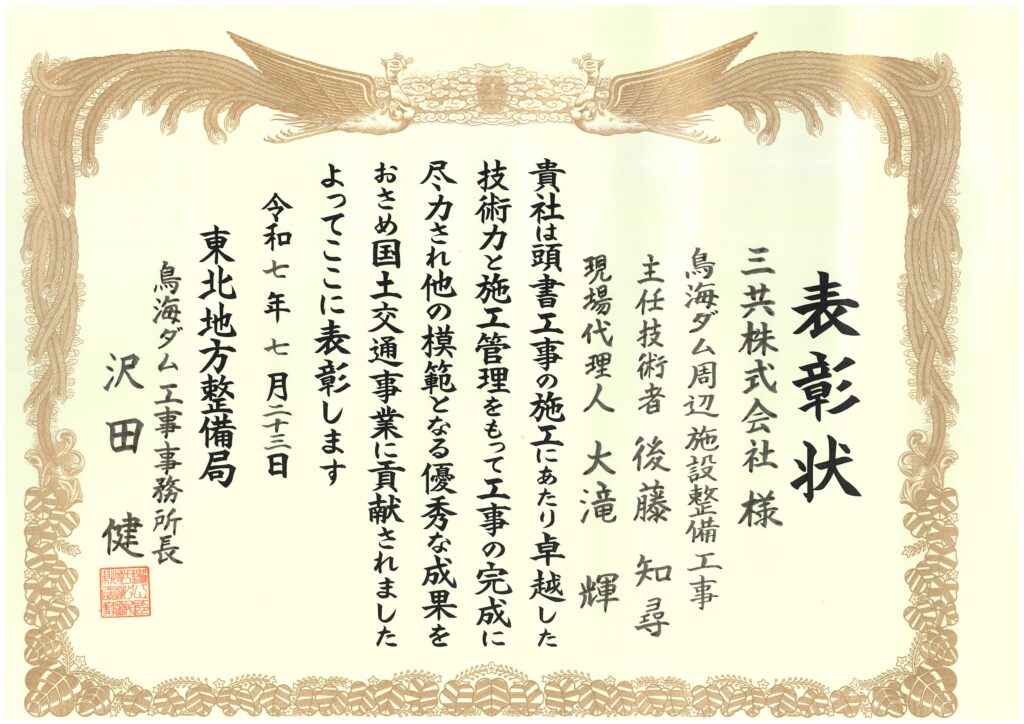 表彰状
三共株式会社 様
鳥海ダム周辺施設整備工事
主任技術者 後藤 知尋
現場代理人 大滝 輝
貴社は頭書工事の施工にあたり卓越した
技術力と施工管理をもって工事の完成に
尽力され他の模範となる優秀な成果を
おさめ国土交通事業に貢献されました
よってここに表彰します
令和七年七月二十三日
東北地方整備局
鳥海ダム工事事務所長
沢田 健